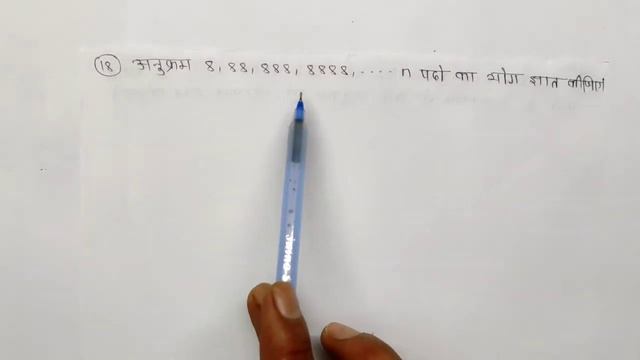 (18) अनुक्रम 8, 88, 888, 8888, ..... n पदो का योग ज्ञात कीजिए